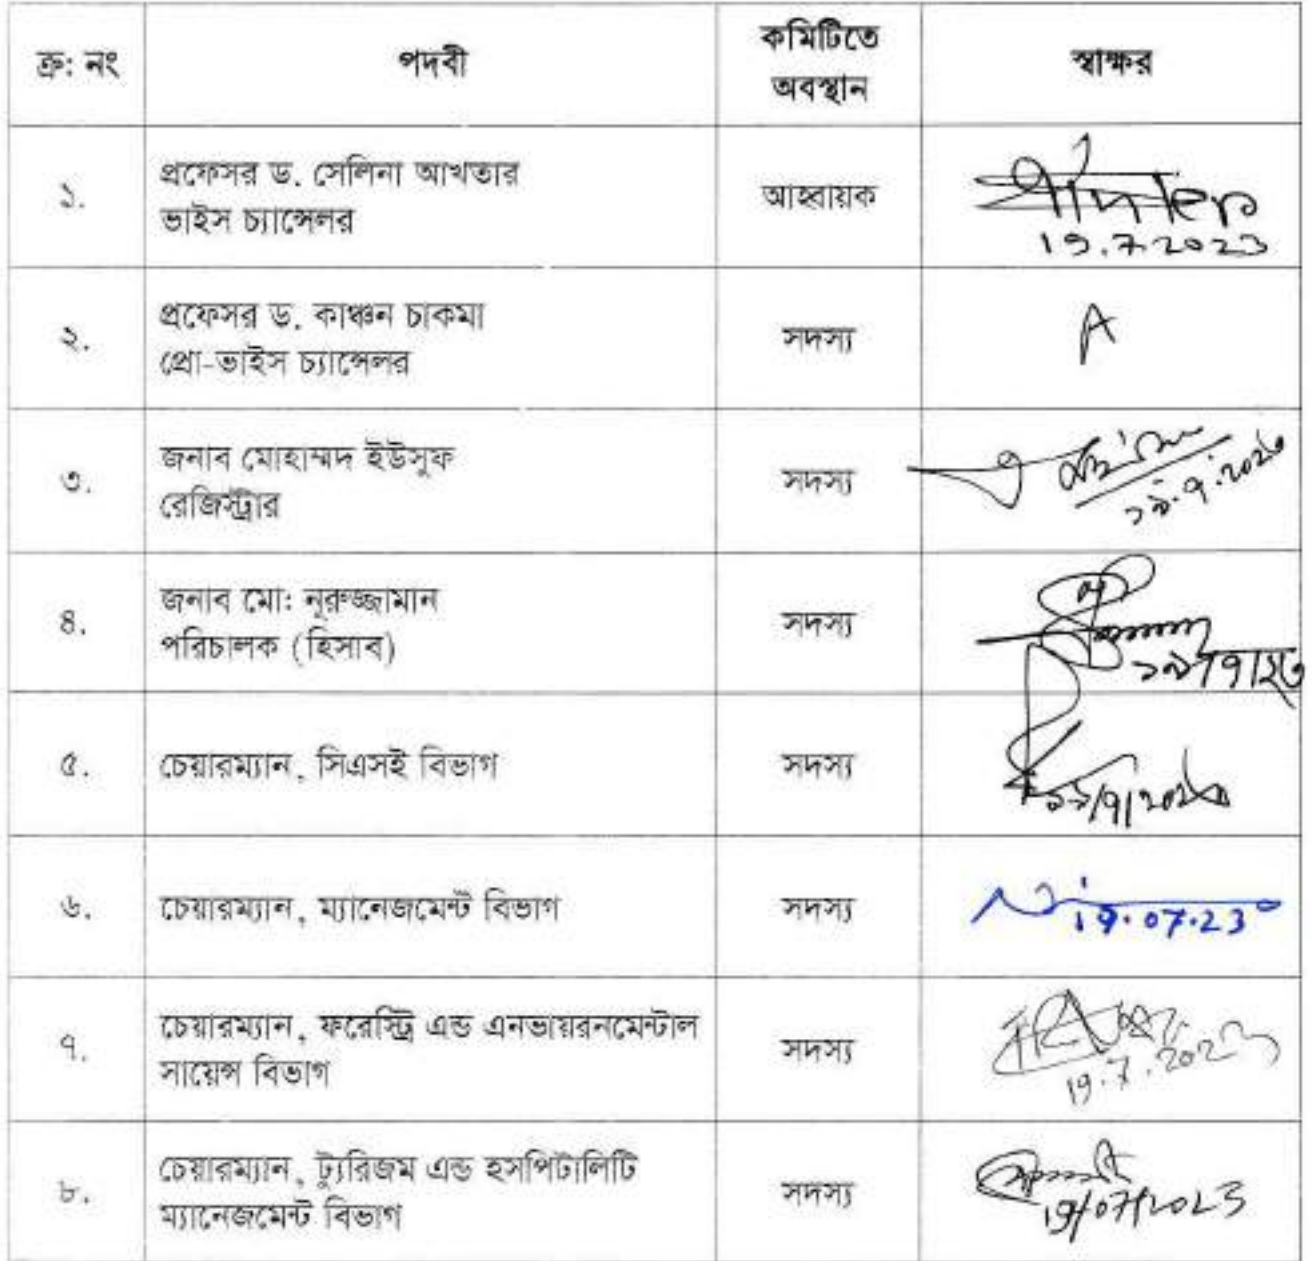 ক্র: নং
পদবী
কমিটিতে
অবস্থান
স্বাক্ষর
১.
প্রফেসর ড. সেলিনা আখতার
ভাইস চ্যান্সেলর
আহবায়ক
19.7.2023
২.
প্রফেসর ড. কাঞ্চন চাকমা
প্রো-ভাইস চ্যান্সেলর
সদস্য
A
৩.
জনাব মোহাম্মদ ইউসুফ
রেজিস্ট্রার
সদস্য
১৯.৭.২০২৩
৪.
জনাব মো: নূরুজ্জামান
পরিচালক (হিসাব)
সদস্য
১৯/৭/২৩
৫.
চেয়ারম্যান, সিএসই বিভাগ
সদস্য
১৯/৭/২০২৩
৬.
চেয়ারম্যান, ম্যানেজমেন্ট বিভাগ
সদস্য
19.07.23
৭.
চেয়ারম্যান, ফরেস্ট্রি এন্ড এনভায়রনমেন্টাল
সায়েন্স বিভাগ
সদস্য
19.7.2023
৮.
চেয়ারম্যান, ট্যুরিজম এন্ড হসপিটালিটি
ম্যানেজমেন্ট বিভাগ
সদস্য
19/07/2023